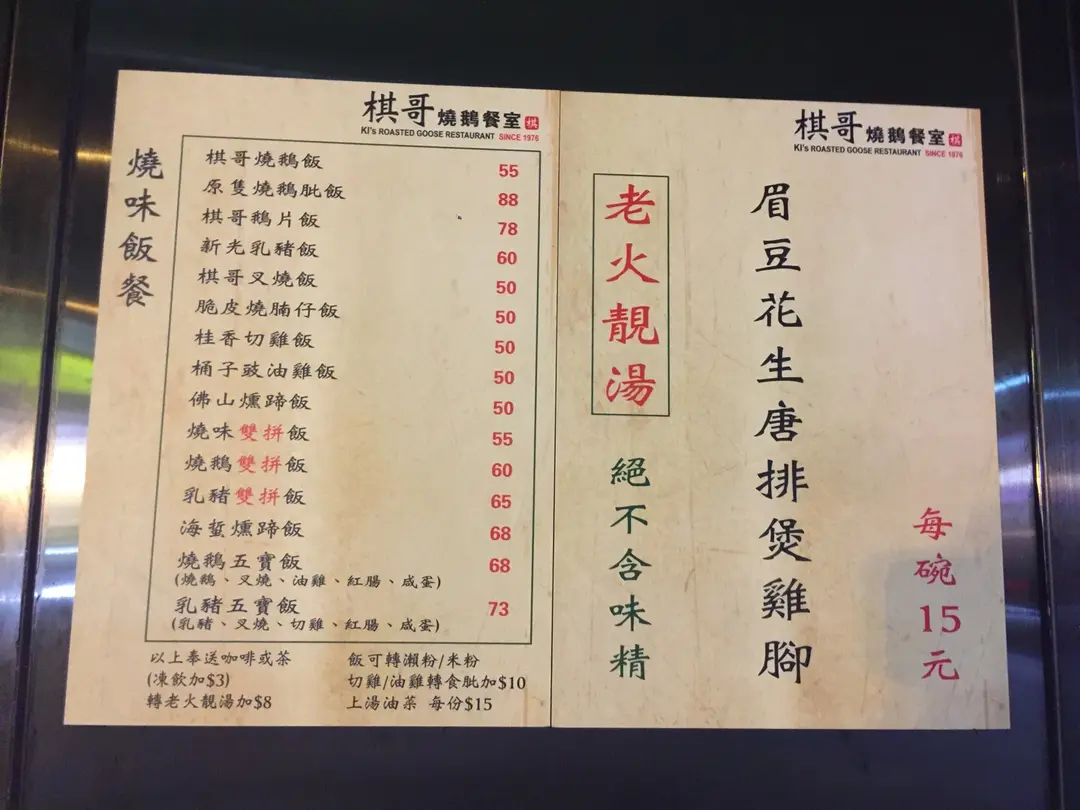 棋哥燒鵝餐室 棋
KI's ROASTED GOOSE RESTAURANT SINCE 1976
燒味飯餐
棋哥燒鵝飯 55
原隻燒鵝髀飯 88
棋哥鵝片飯 78
新光乳豬飯 60
棋哥叉燒飯 50
脆皮燒腩仔飯 50
桂香切雞飯 50
桶子豉油雞飯 50
佛山燻蹄飯 50
燒味雙拼飯 55
燒鵝雙拼飯 60
乳豬雙拼飯 65
海蜇燻蹄飯 68
燒鵝五寶飯 68
(燒鵝、叉燒、油雞、紅腸、咸蛋)
乳豬五寶飯 73
(乳豬、叉燒、切雞、紅腸、咸蛋)
以上奉送咖啡或茶
(凍飲加$3)
轉老火靚湯加$8
飯可轉瀨粉/米粉
切雞/油雞轉食肶加$10
上湯油菜 每份$15
棋哥燒鵝餐室 棋
KI's ROASTED GOOSE RESTAURANT SINCE 1976
老火靚湯
絕不含味精
眉豆花生唐排煲雞腳
每碗15元